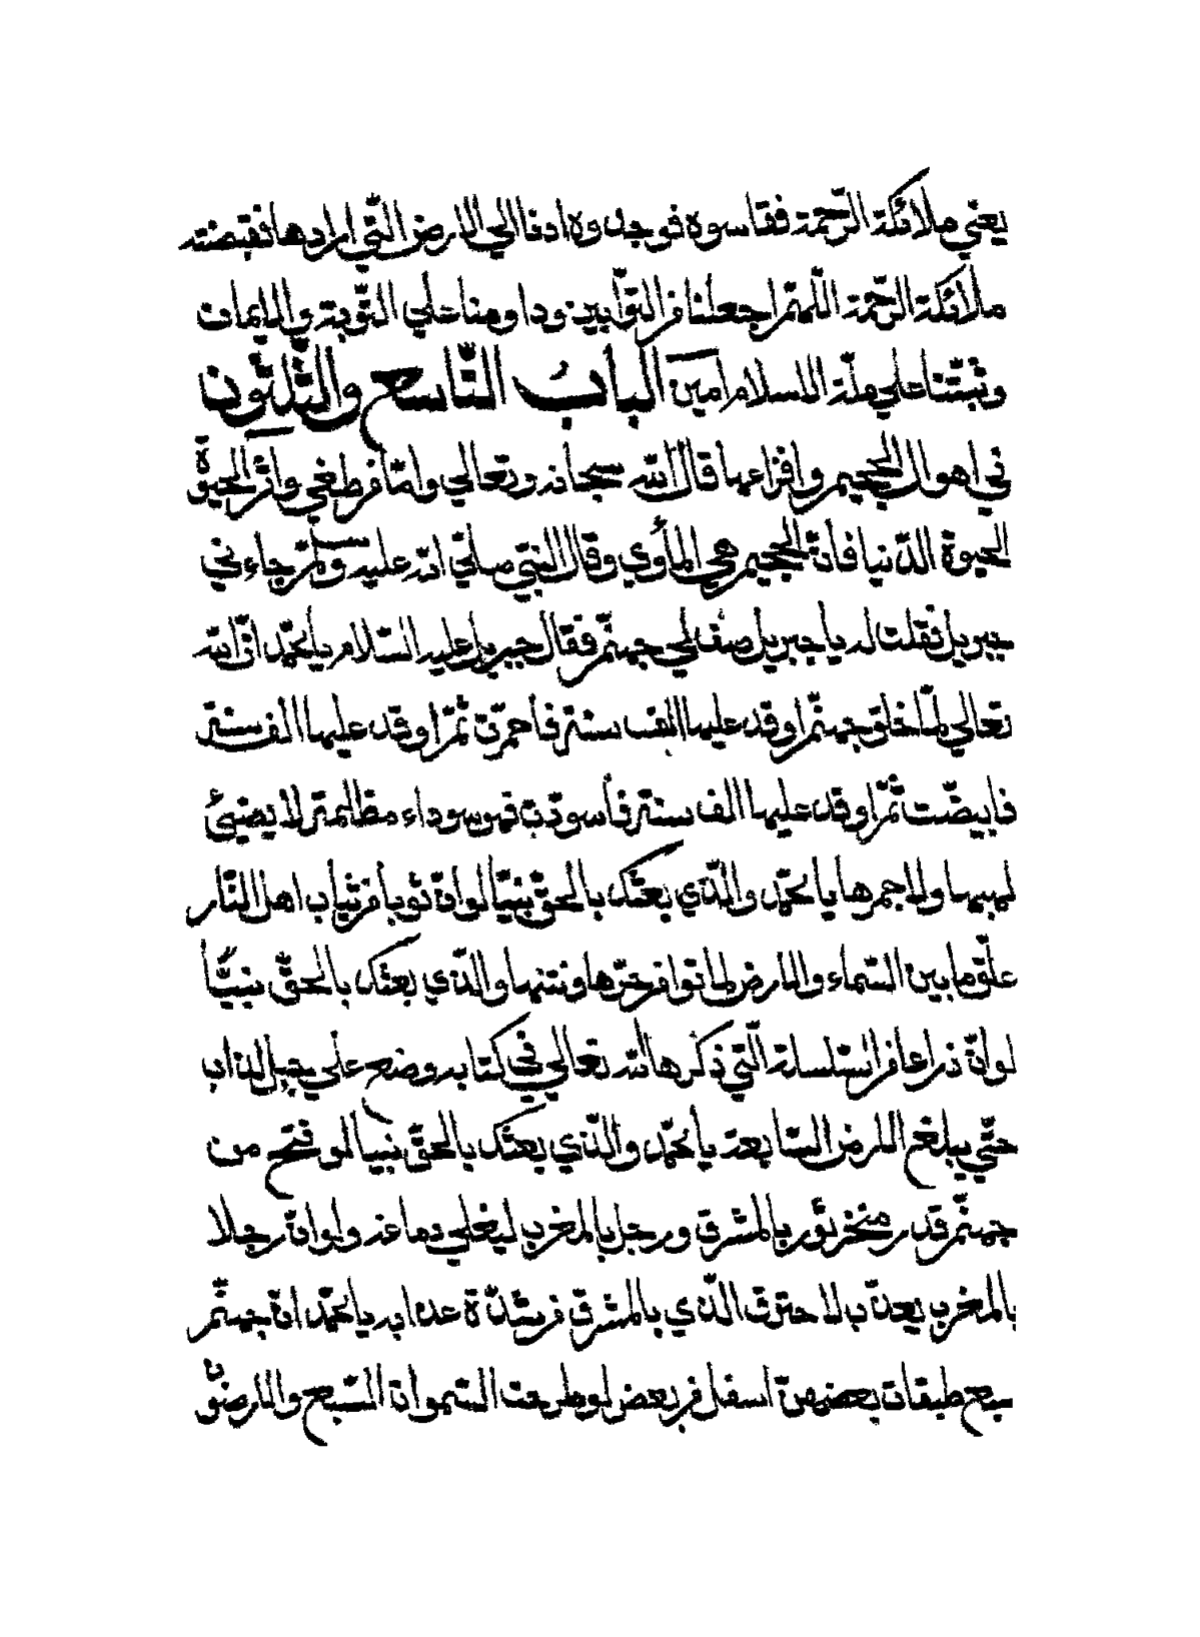 يعني ملائكة الرّحمة فقاسوه فوجدوه ادنا الي الارض الّتي ارادها فقبضته
ملائكة الرّحمة اللّهمّ اجعلنا من التّوّابين وداومنا علي التّوبة والايمان
وثبّتنا علي ملّة الاسلام آمين الباب التّاسع والثّلثون
في اهوال الجحيم وافزاعها قال اللّه سبحانه وتعالي وامّا من طغي وآثر الحيوة
الحيوة الدّنيا فانّ الجحيم هي المأوي وقال النّبيّ صلّي اللّه عليه وسلّم جاءني
جبريل فقلت له يا جبريل صف لي جهنّم فقال جبريل عليه السّلام يا محمّد انّ اللّه
تعالي لمّا خلق جهنّم اوقد عليها الف سنة فأحمرّت ثمّ اوقد عليها الف سنة
فابيضّت ثمّ اوقد عليها الف سنة فأسودّت فهي سوداء مظالمة لا يضيئ
لهيبها ولا جمرها يا محمّد والّذي بعثك بالحقّ نبيّا لو انّ ثوبا من ثياب اهل النّار
علّق ما بين السّماء والارض لماتوا من حرّها ونتنها والّذي بعثك بالحقّ نبيّاً
لو انّ ذراعا من السّلسلة الّتي ذكرها اللّه تعالي في كتابه وضع علي جبل لذاب
حتّي يبلغ الارض السّابعة يا محمّد والّذي بعثك بالحقّ نبيا لو فتح من
جهنّم قدر منخر ثور بالمشرق ورجل بالمغرب ليغلي دماغه ولو انّ رجلا
بالمغرب يعذّب لاحترق الّذي بالمشرق من شدّة عذابه يا محمّد انّ جهنّم
سبع طبقات بعضهنّ اسفل من بعض لو طرحت السّموات السّبع والارضون